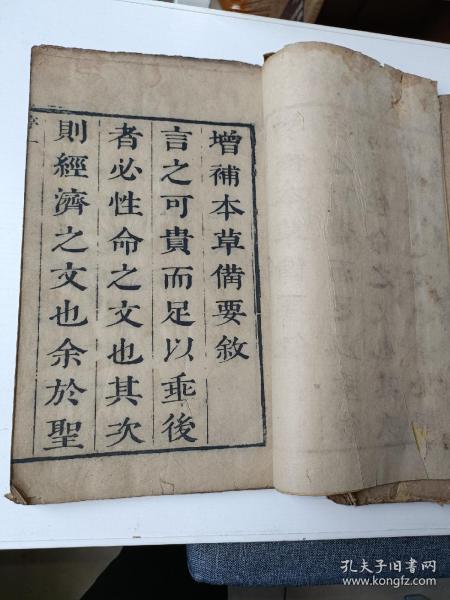 增補本草備要敘
言之可貴而足以乖後
者必性命之文也其次
則經濟之文也余於聖
序一
孔夫子旧书网
www.kongfz.com